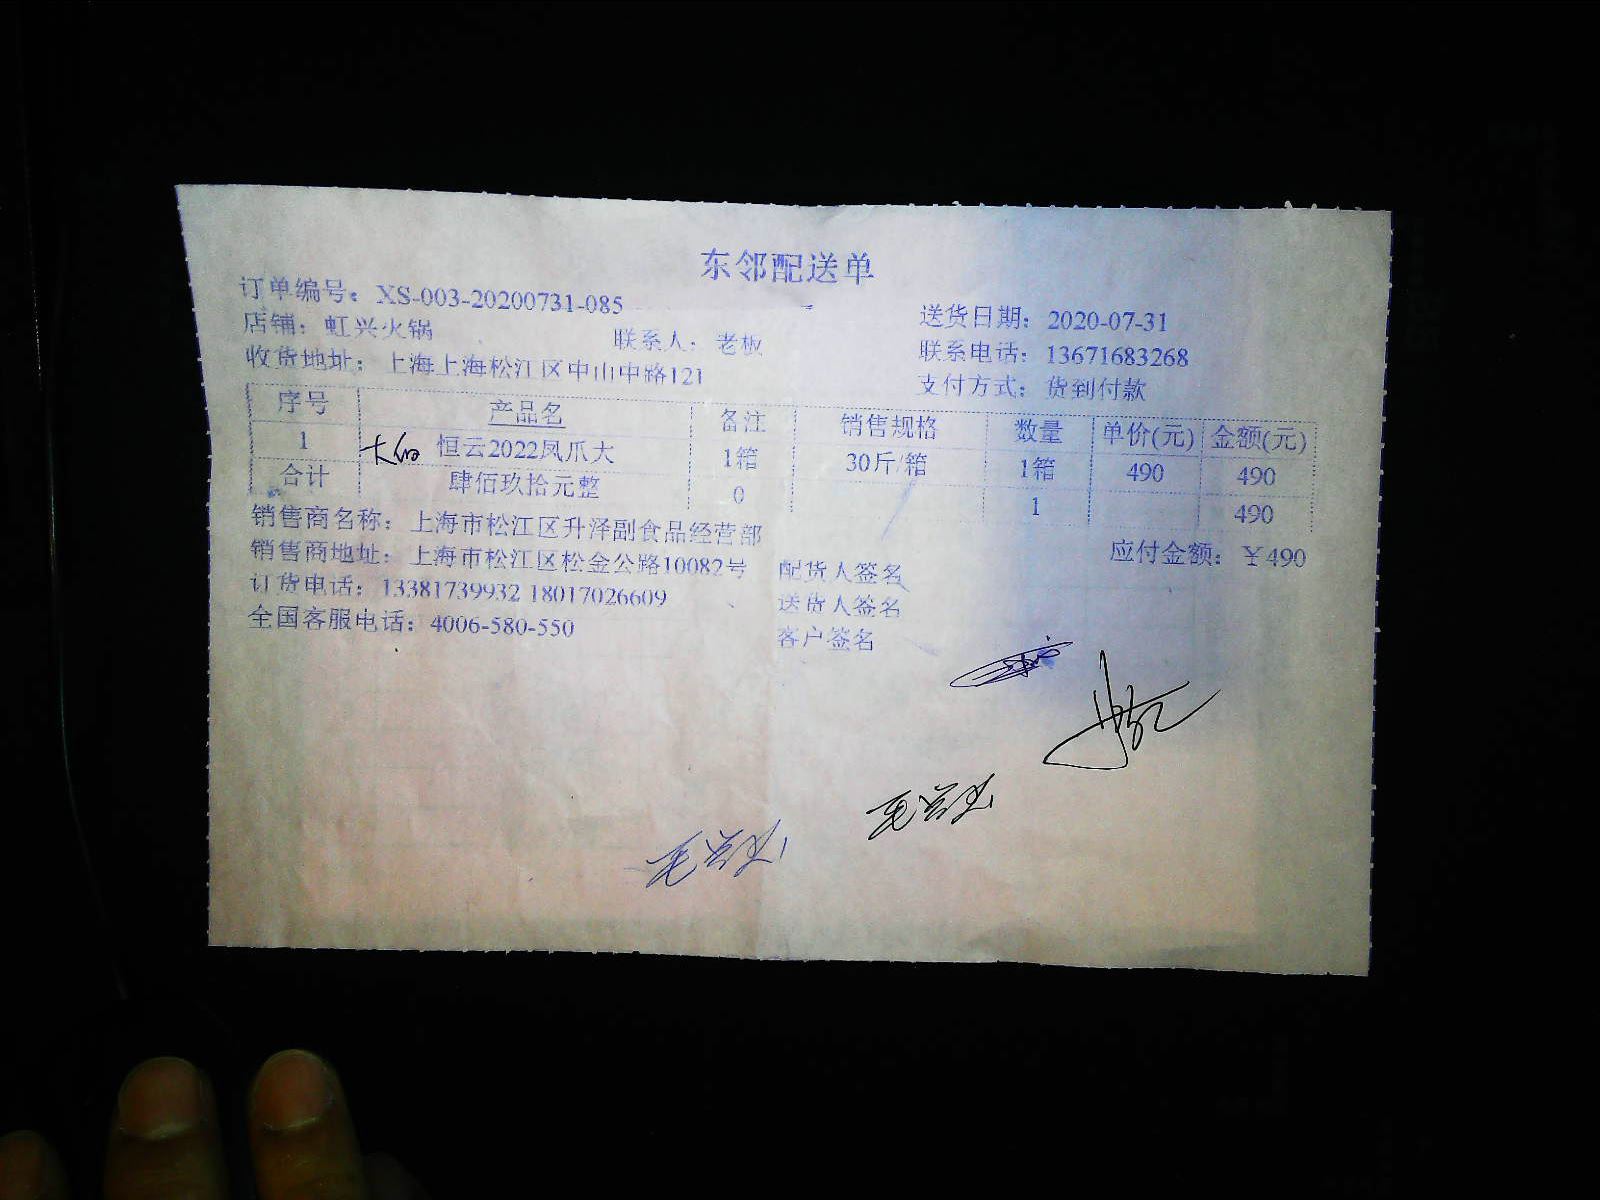 东邻配送单
订单编号：XS-003-20200731-085 送货日期：2020-07-31
店铺：虹兴火锅 联系人：老板 联系电话：13671683268
收货地址：上海上海松江区中山中路121 支付方式：货到付款
序号 产品名 备注 销售规格 数量 单价(元) 金额(元)
1 恒云2022凤爪大 1箱 30斤/箱 1箱 490 490
合计 肆佰玖拾元整 0 1 490
销售商名称：上海市松江区升泽副食品经营部 应付金额：￥490
销售商地址：上海市松江区松金公路10082号 配货人签名
订货电话：13381739932 18017026609 送货人签名
全国客服电话：4006-580-550 客户签名